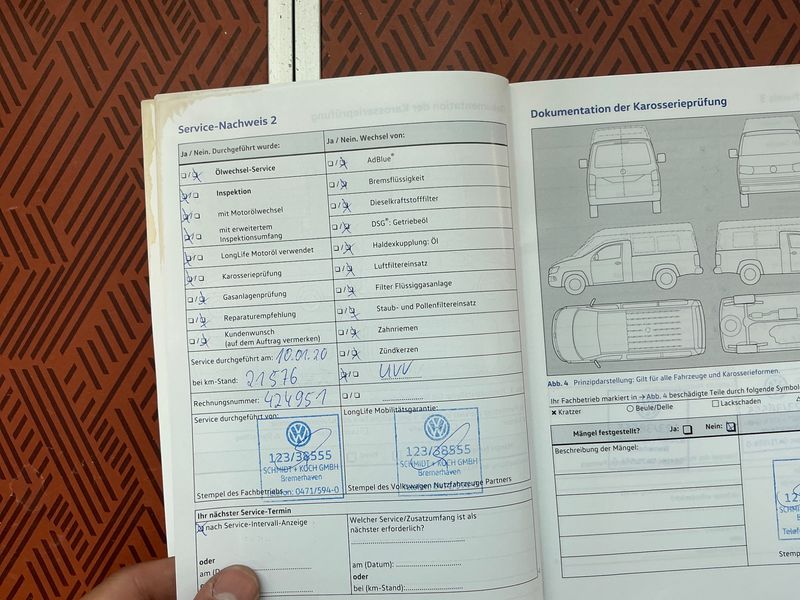 Service-Nachweis 2
Ja / Nein. Durchgeführt wurde:
Ölwechsel-Service
Inspektion
mit Motorölwechsel
mit erweitertem
Inspektionsumfang
LongLife Motoröl verwendet
Karosserieprüfung
Gasanlagenprüfung
Reparaturempfehlung
Kundenwunsch
(auf dem Auftrag vermerken)
Ja / Nein. Wechsel von:
AdBlue®
Bremsflüssigkeit
Dieselkraftstofffilter
DSG®: Getriebeöl
Haldexkupplung: Öl
Luftfiltereinsatz
Filter Flüssiggasanlage
Staub- und Pollenfiltereinsatz
Zahnriemen
Zündkerzen
UVV
Service durchgeführt am: 10.01.20
bei km-Stand: 21576
Rechnungsnummer: 424951
Service durchgeführt von:
123/38555
SCHMIDT + KOCH GMBH
Bremerhaven
Telefon: 0471/594-0
Stempel des Fachbetriebs
LongLife Mobilitätsgarantie:
123/38555
SCHMIDT + KOCH GMBH
Bremerhaven
Stempel des Volkswagen Nutzfahrzeuge Partners
Ihr nächster Service-Termin
nach Service-Intervall-Anzeige
oder
am
Welcher Service/Zusatzumfang ist als
nächster erforderlich?
am (Datum):
oder
bei (km-Stand):
Dokumentation der Karosserieprüfung
Abb. 4 Prinzipdarstellung: Gilt für alle Fahrzeuge und Karosserieformen.
Ihr Fachbetrieb markiert in → Abb. 4 beschädigte Teile durch folgende Symbol
Kratzer
Beule/Delle
Lackschaden
Mängel festgestellt? Ja: Nein:
Beschreibung der Mängel: